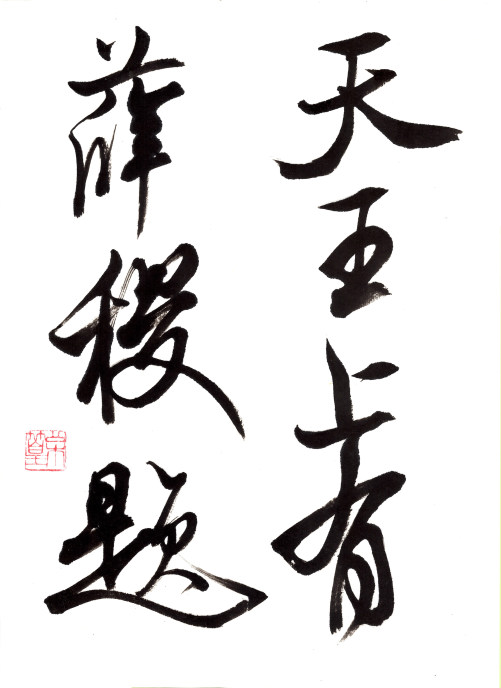 天王上有
薛稷題